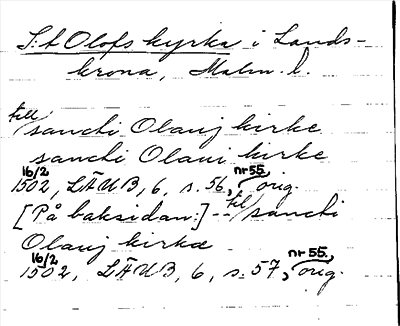 S:t Olofs kyrka i Lands-
krona, Malm. l.
till sancti Olauj kirke
sancti Olaui kirke
16/2 1502, LÄUB, 6, s. 56, nr 55, orig.
[På baksidan:] -- till sancti
Olauj kirkæ
16/2 1502, LÄUB, 6, s. 57, nr 55, orig.